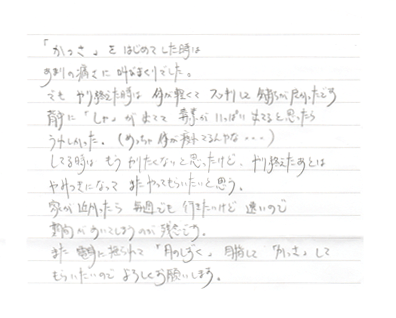 「かっさ」をはじめてした時は
あまりの痛さに叫びまくりでした。
でも やり終えた時は 体が軽くて スッキリして 気持ちが良かったです
背中に「しゃ」が出てて 毒素がいっぱい出てると思ったら
うれしかった。(めっちゃ 体が疲れてるんやな・・・)
してる時は もう やりたくないと思ったけど、やり終えたあとは
やみつきになって またやってもらいたいと思う。
家が近かったら 毎週でも 行きたいけど 遠いので
期間があいてしまうのが 残念です。
また 電車に揺られて 「月のしずく」目指して 「かっさ」して
もらいたいので よろしくお願いします。